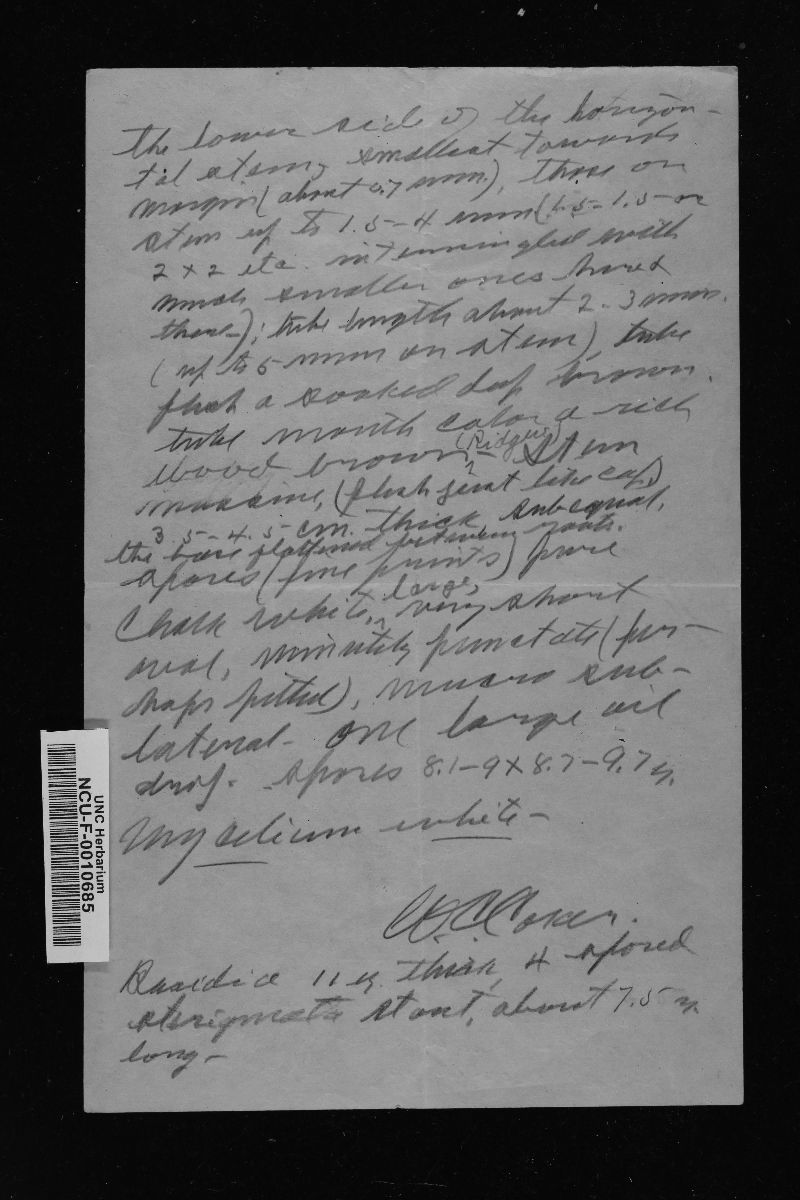 the lower side of the horizon-
tal stem, smallest towards
margin (about 0.7 mm.), those on
stem up to 1.5-4 mm (1.5-1.5 or
2 x 2 etc. intermingled with
much smaller ones here &
there-); tube length about 2-3 mm.
(up to 5 mm on stem), tube
flesh a soaked deep brown.
tube mouth color a rich
wood brown (Ridgway)- Stem
massive, (flesh just like cap)
3.5-4.5 cm. thick, subequal,
the base flattened between roots.
Spores (fine prints) pure
chalk white, large, very short
oval, minutely punctate (per-
haps pitted), mucro sub-
lateral- one large oil
drop. Spores 8.1-9 x 8.7-9.7 µ.
Mycelium white-
W.C. Coker.
Basidia 11 µ. thick, 4 spored
sterigmata stout, about 7.5 µ.
long-
UNC Herbarium
NCU-F-0010685